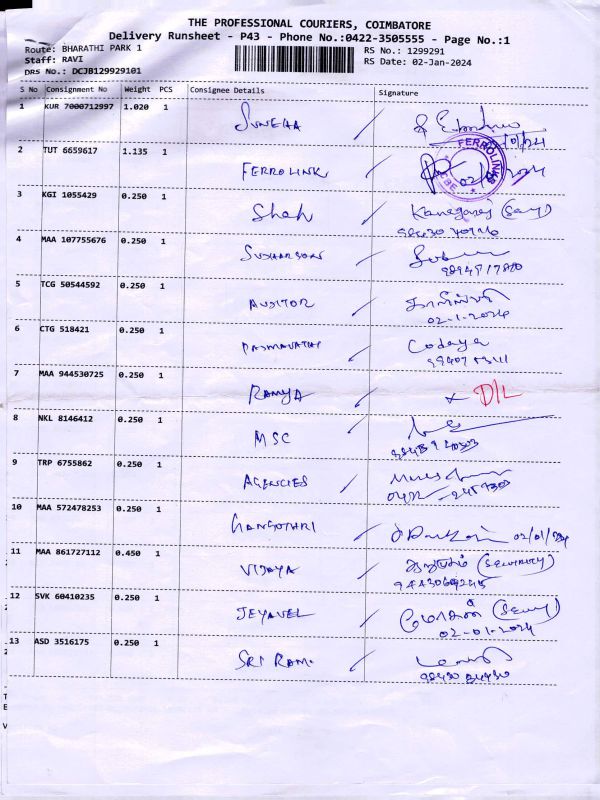 THE PROFESSIONAL COURIERS, COIMBATORE
Delivery Runsheet - P43 - Phone No.:0422-3505555 - Page No.:1
Route: BHARATHI PARK 1
RS No.: 1299291
Staff: RAVI
RS Date: 02-Jan-2024
DRS No.: DCJB129929101
S No Consignment No Weight PCS Consignee Details Signature
1 KUR 7000712997 1.020 1 SUNEHA
2 TUT 6659617 1.135 1 FERROLINK
FERROLINKS
3 KGI 1055429 0.250 1 Shah
4 MAA 107755676 0.250 1 SUDHARSON
5 TCG 50544592 0.250 1 AUDITOR
02-1-2024
6 CTG 518421 0.250 1 PADMAVATHI
7 MAA 944530725 0.250 1 RAMYA D/L
8 NKL 8146412 0.250 1 MSC
9 TRP 6755862 0.250 1 AGENCIES
10 MAA 572478253 0.250 1 GANGOTHRI 02/01/2024
11 MAA 861727112 0.450 1 VIJAYA (Security)
12 SVK 60410235 0.250 1 JEYAVEL
02-01-2024
13 ASD 3516175 0.250 1 SRI RAM.